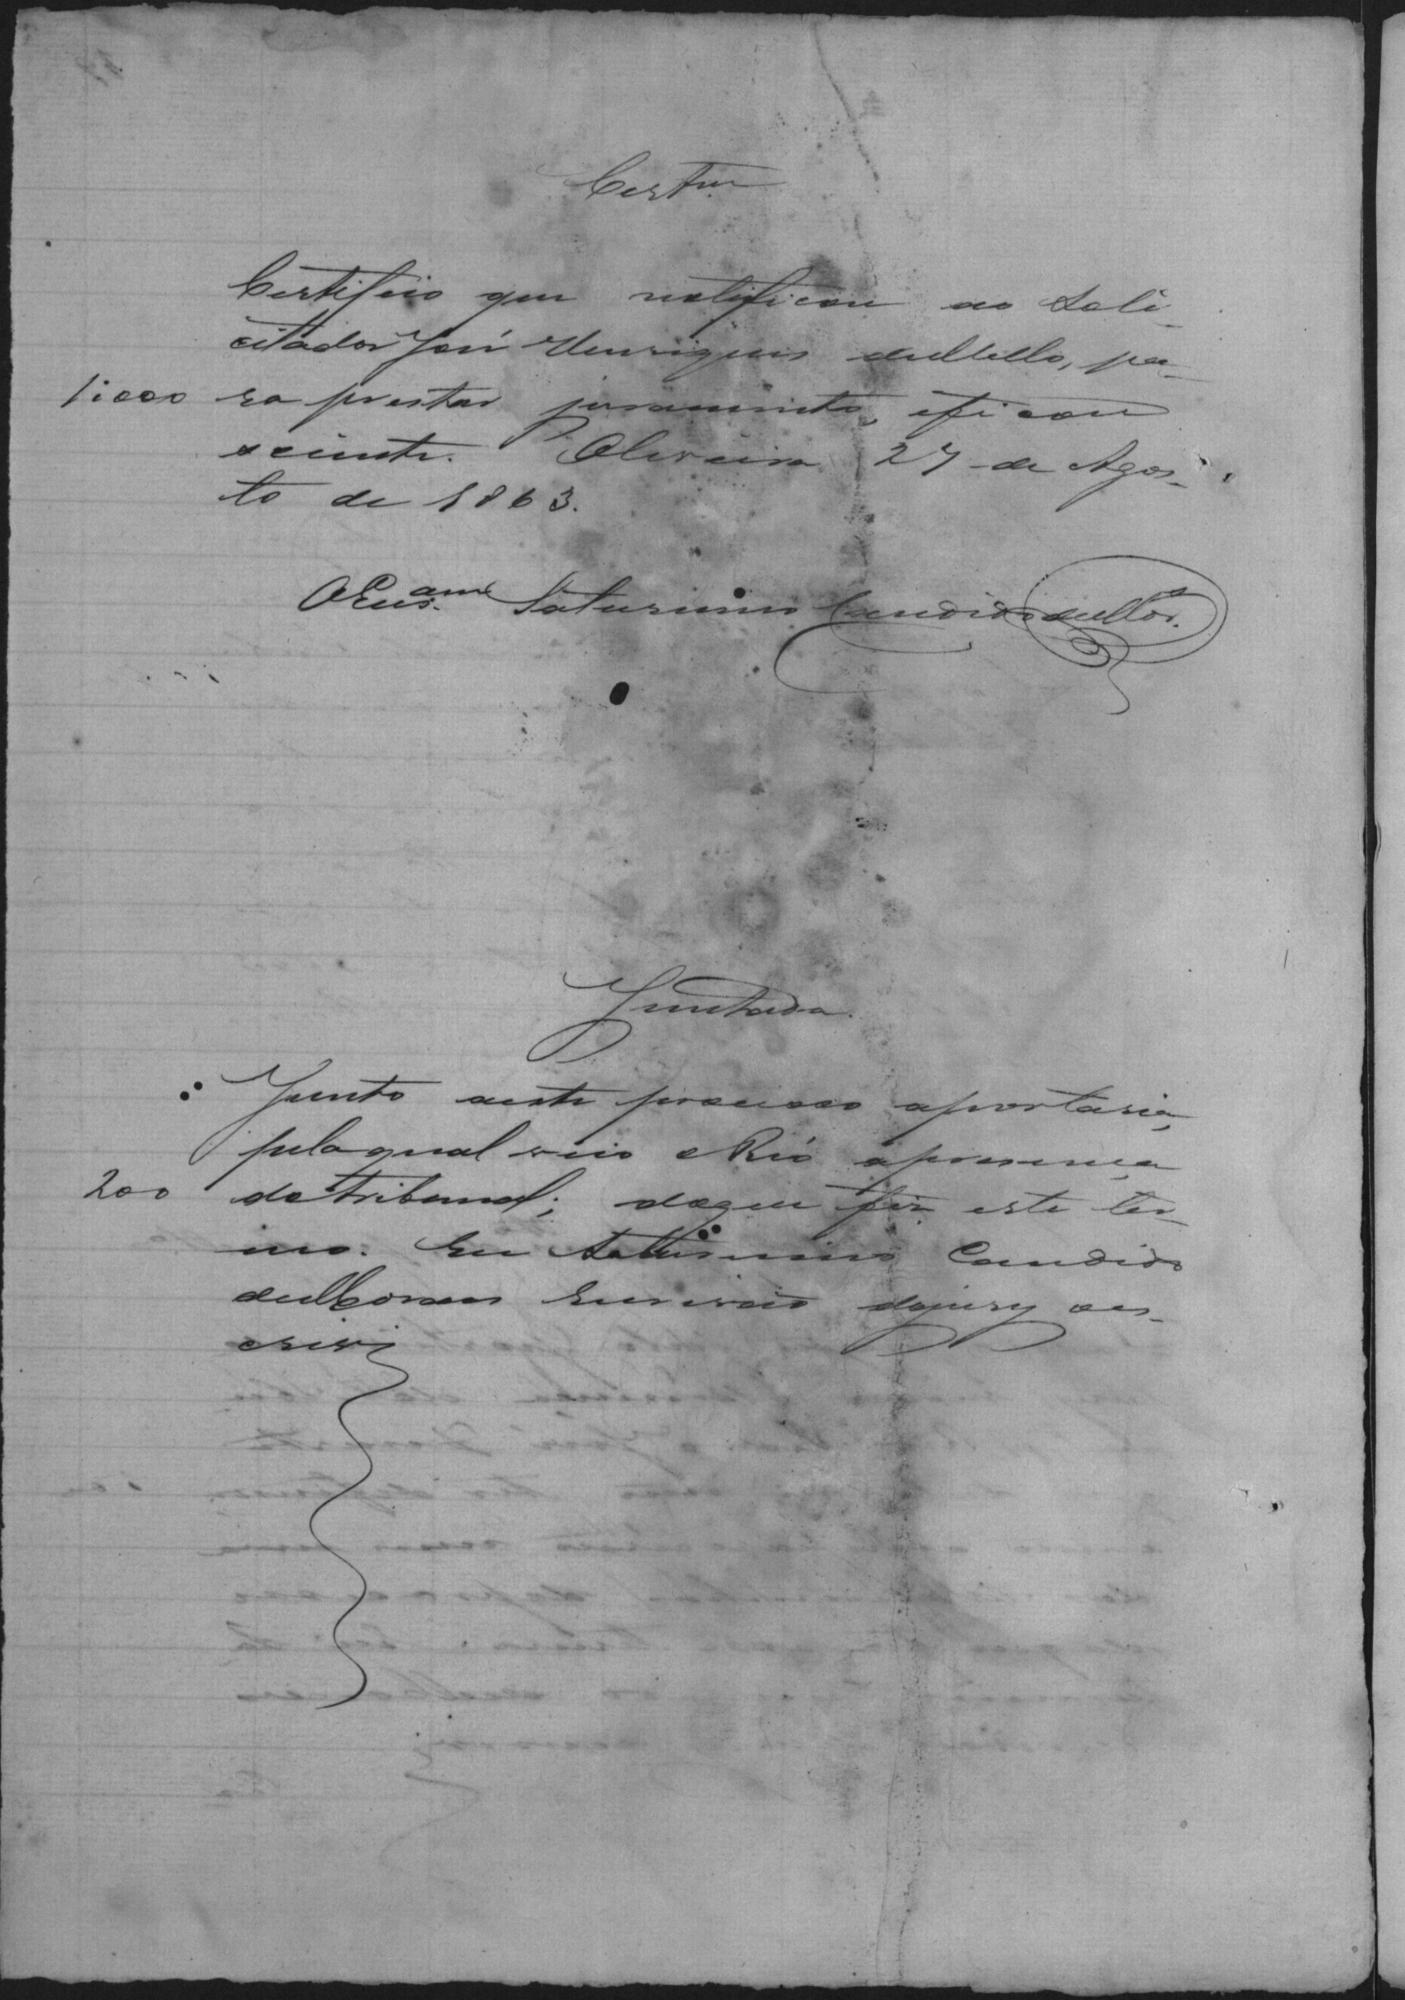 Certam
Certifico que notificou ao Soli-
citador José Henriques deMello, pa-
1:000 ra prestar juramento, eficou
sciente. Oliveira 27 de Agos-
to de 1863.
OEscam Saturnino Candido deMor.
Juntada.
Junto aeste processo aportaria,
pelaqual veio oRéo apresença
200 doTribunal; doque fiz este ter-
mo. Eu Saturnino Candido
deMoraes Escrivão dojury oes-
crivi